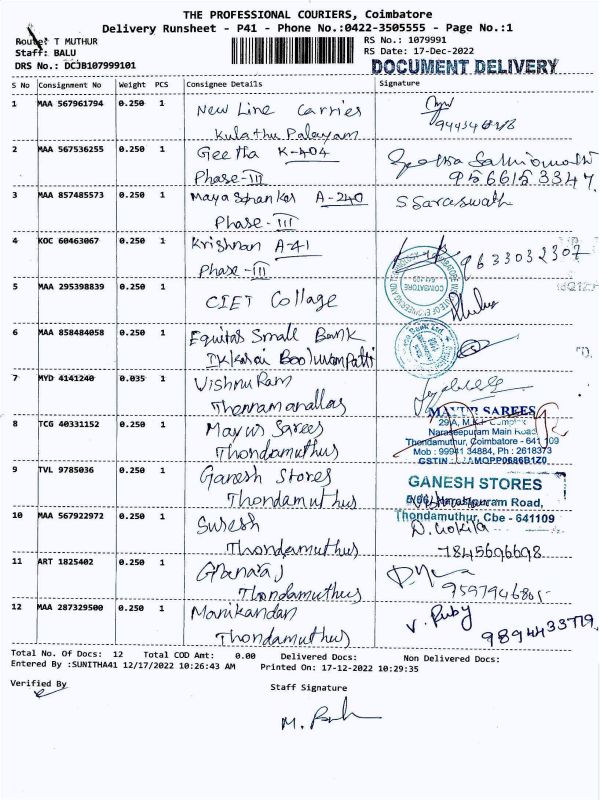 THE PROFESSIONAL COURIERS, Coimbatore
Delivery Runsheet - P41 - Phone No.:0422-3505555 - Page No.:1
Route: T MUTHUR
RS No.: 1079991
Staff: BALU
RS Date: 17-Dec-2022
DRS No.: DCJB107999101
DOCUMENT DELIVERY
S No Consignment No Weight PCS Consignee Details Signature
1 MAA 567961794 0.250 1 New Line Carrier
Kulathu Palayam
2 MAA 567536255 0.250 1 Geetha K-404
Phase-III
956615 3347
3 MAA 857485573 0.250 1 Mayashankar A-240 S Saraswath
Phase-III
4 KOC 60463067 0.250 1 Krishnan A-41 9633032307
Phase-III
COIMBATORE
5 MAA 295398839 0.250 1 CIET Collage
6 MAA 858484058 0.250 1 Equitas Small Bank
7 MYD 4141240 0.035 1 Vishnu Ram
8 TCG 40331152 0.250 1 Mayur Sarees
Thondamuthur
MAYUR SAREES
29/A, M.K.
Naraseepuram Main Road
Thondamuthur, Coimbatore - 641 109
Mob : 99941 34884, Ph : 2618373
GSTIN
9 TVL 9785036 0.250 1 Ganesh Stores
Thondamuthur
GANESH STORES
Road,
Thondamuthur, Cbe - 641109
10 MAA 567922972 0.250 1 Suresh D. Gokila
Thondamuthur 7845696698
11 ART 1825402 0.250 1 Gnanaraj
Thondamuthur
12 MAA 287329500 0.250 1 Manikandan V. Ruby
Thondamuthur 9894433779
Total No. Of Docs: 12 Total COD Amt: 0.00 Delivered Docs: Non Delivered Docs:
Entered By :SUNITHA41 12/17/2022 10:26:43 AM Printed On: 17-12-2022 10:29:35
Verified By
Staff Signature